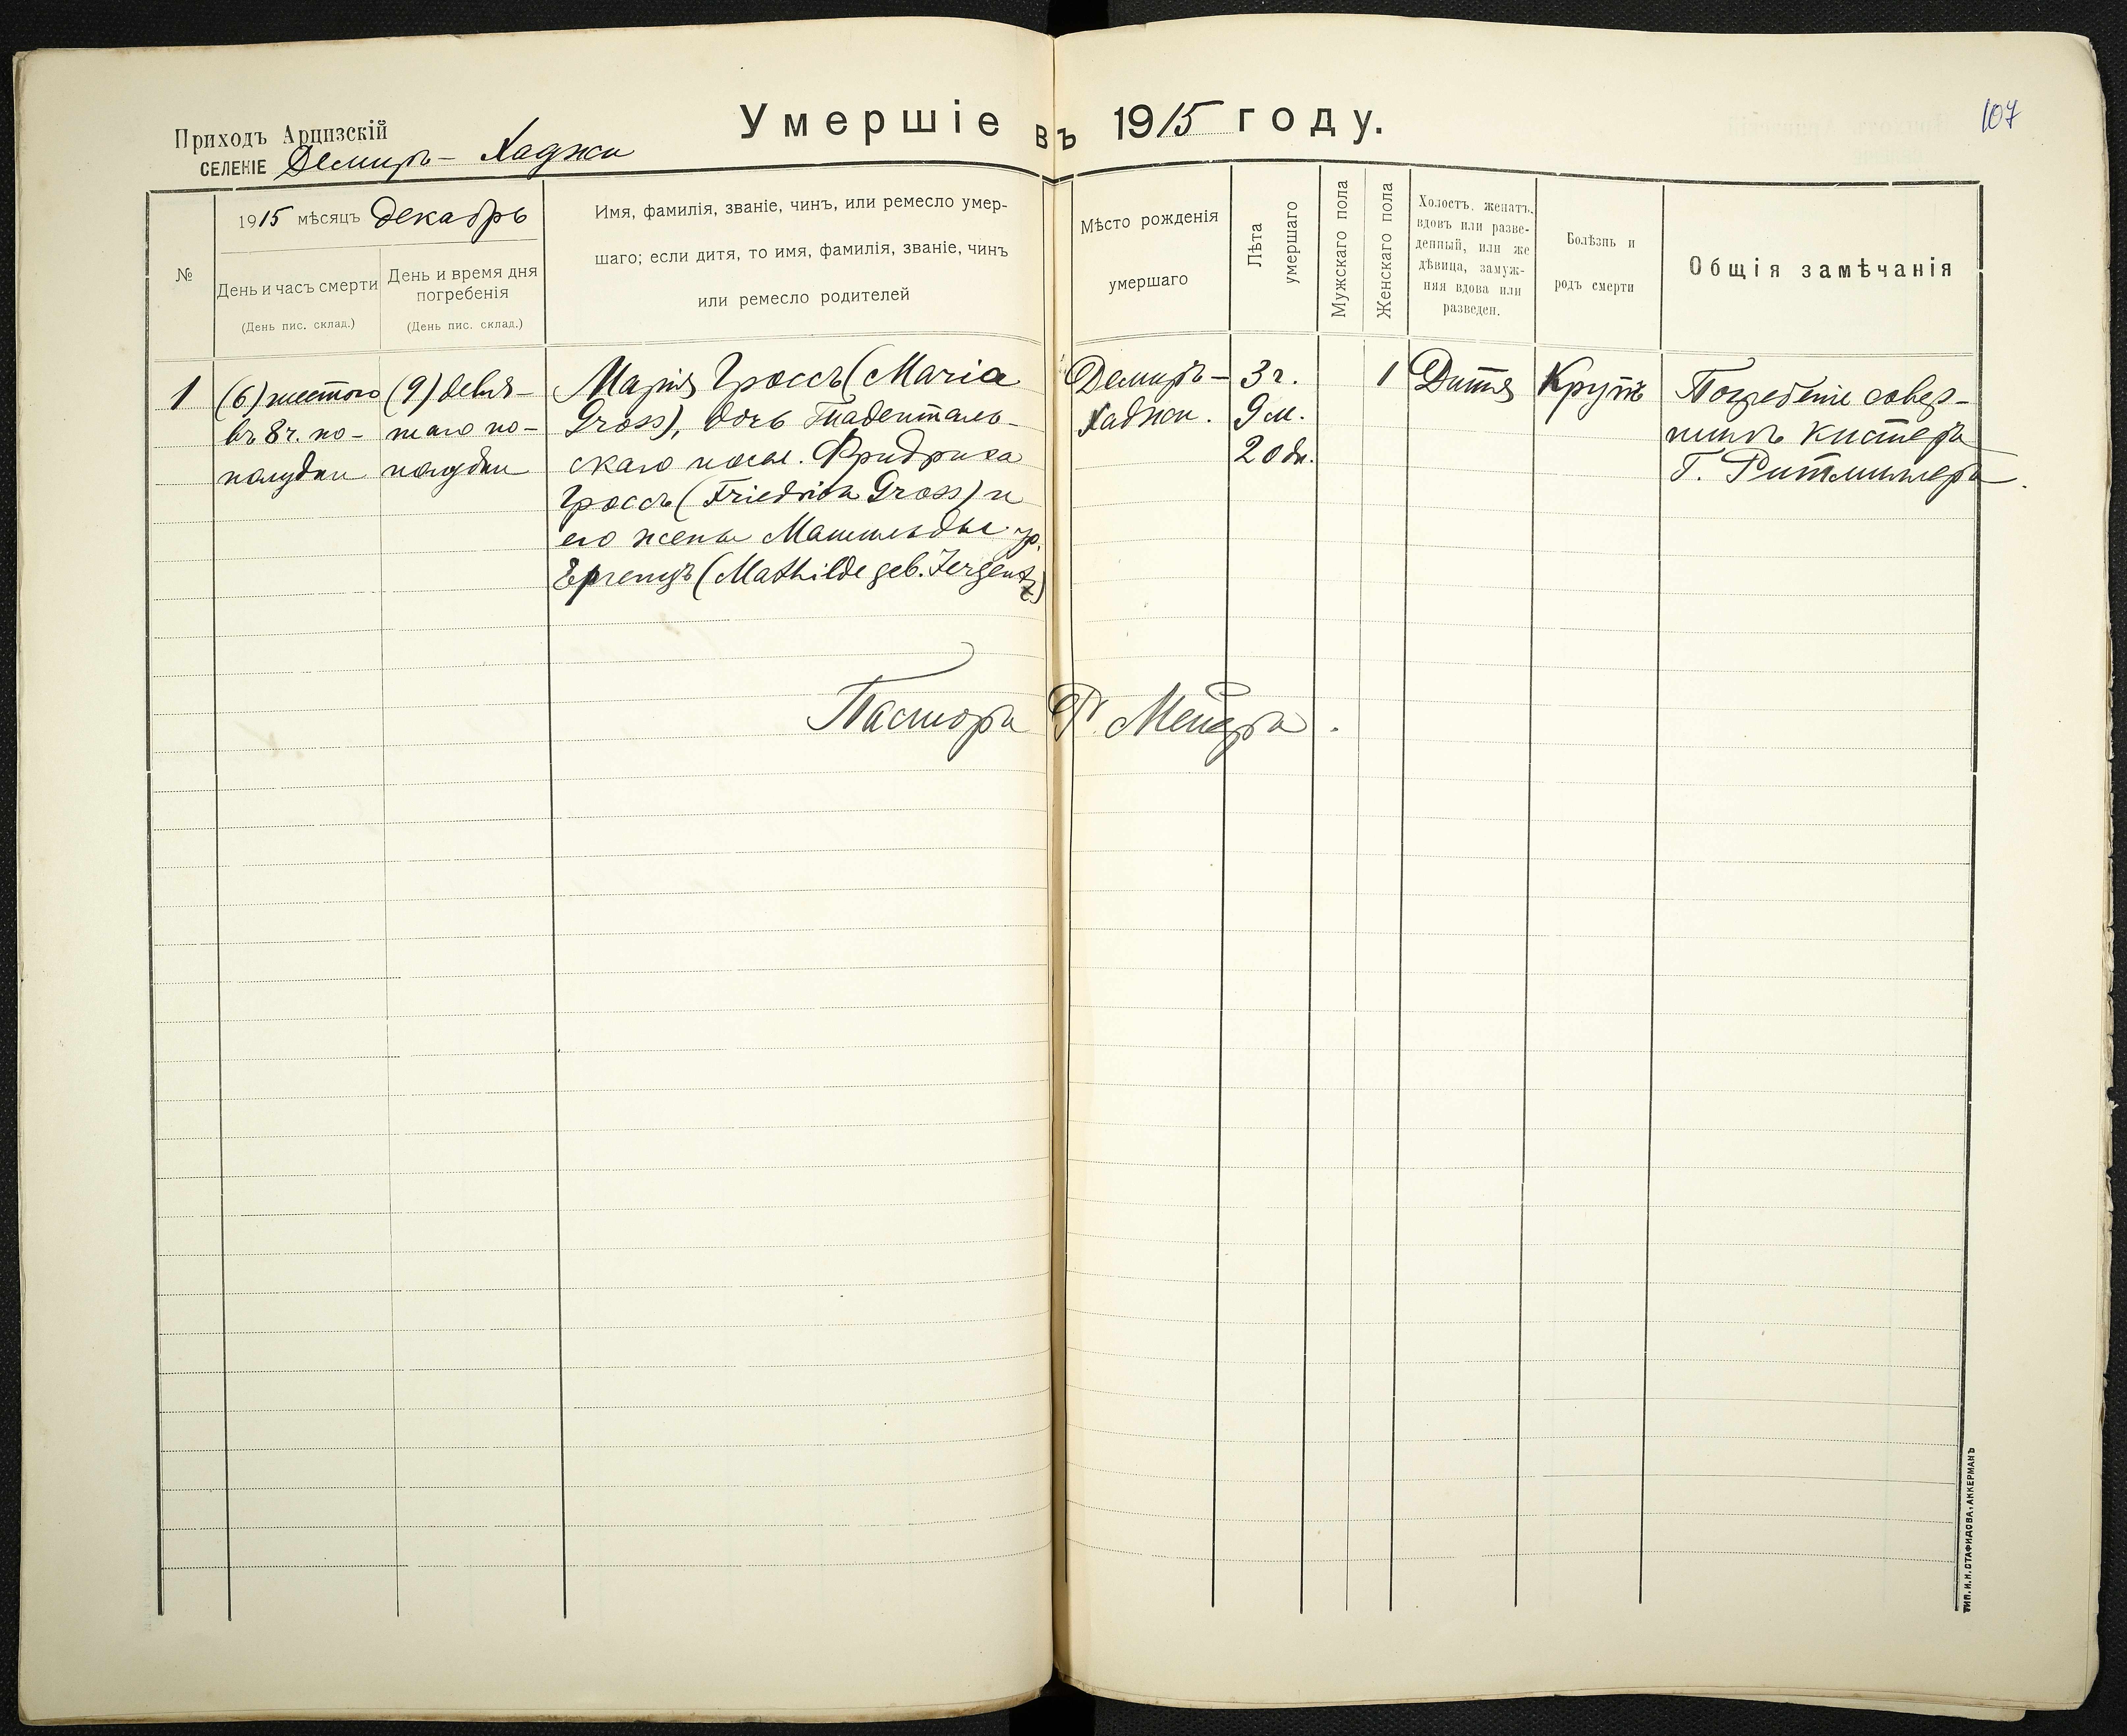 Умершіе въ 1915 году.
107
Приходъ Арцизскій
СЕЛЕНІЕ Демиръ-Хаджи
№
1915 мѣсяцъ декабрь
День и часъ смерти
(День пис. склад.)
День и время дня
погребенія
(День пис. склад.)
Имя, фамилія, званіе, чинъ, или ремесло умер-
шаго; если дитя, то имя, фамилія, званіе, чинъ
или ремесло родителей
Мѣсто рожденія
умершаго
Лѣта
умершаго
Мужскаго пола
Женскаго пола
Холостъ, женатъ,
вдовъ или разве-
денный, или же
дѣвица, замуж-
няя вдова или
разведен.
Болѣзнь и
родъ смерти
Общія замѣчанія
1
(6) шестого
въ 8 ч. по-
полудни
(9) девя-
таго по-
полудни
Марія Гроссъ (Maria
Gross), дочь Гнаденталь-
скаго посел. Фридриха
Гроссъ (Friedrich Gross) и
его жены Матильды ур.
Ергенцъ (Mathilde geb. Jergentz)
Демиръ-
Хаджи.
3 г.
9 м.
20 дн.
1
Дитя
Крупъ
Погребеніе совер-
шилъ кистеръ
Г. Ритмиллеръ.
Пасторъ Фр. Мейеръ.
ТИП. И. Н. СТАФИДОВА, АККЕРМАНЪ